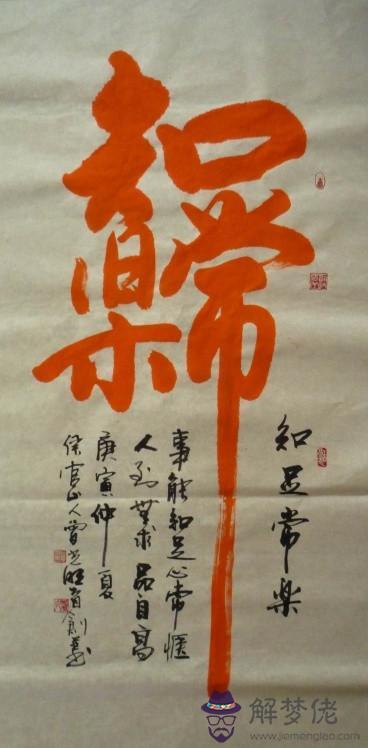 知足常樂
事能知足心常愜
人到無求品自高
庚寅仲夏
山人曾
解梦佬
www.jiemenglao.com